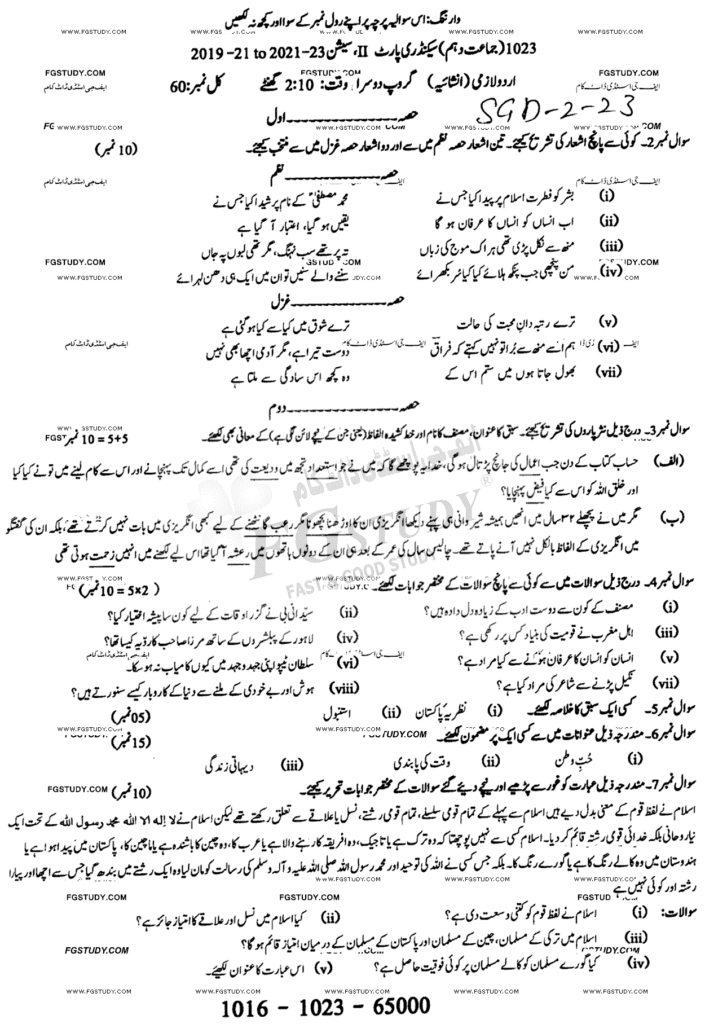 وارننگ: اس سوالیہ پرچہ پر اپنے رول نمبر کے سوا اور کچھ نہ لکھیں
1023 (جماعت دہم) سیکنڈری پارٹ II، سیشن 23-2021 to 21-2019
FGSTUDY.COM
اردو لازمی (انشائیہ) گروپ دوسرا وقت: 2:10 گھنٹے کل نمبر: 60
SGD-2-23
حصہ اول
سوال نمبر 2۔ کوئی سے پانچ اشعار کی تشریح کیجئے۔ تین اشعار حصہ نظم میں سے اور دو اشعار حصہ غزل میں سے منتخب کیجئے۔ (10 نمبر)
حصہ نظم
(i) بشر کو فطرت اسلام پر پیدا کیا جس نے محمد مصطفیٰؐ کے نام پر شیدا کیا جس نے
(ii) اب انساں کو انساں کا عرفان ہو گا یقیں ہو گیا، اعتبار آ گیا ہے
(iii) منھ سے نکل پڑی تھی ہر اک موج کی زباں تہ پر تھے سب نہنگ، مگر تھی لبوں پہ جاں
(iv) من پنچھی جب پنکھ ہلائے کیا کیا سُر بکھرائے سننے والے سنیں تو ان میں ایک ہی دھن لہرائے
حصہ غزل
(v) ترے رتبہ دانِ محبت کی حالت ترے شوق میں کیا سے کیا ہو گئی ہے
(vi) ہم اُسے منھ سے بُرا تو نہیں کہتے کہ فراق دوست تیرا ہے، مگر آدمی اچھا بھی نہیں
(vii) بھول جاتا ہوں میں ستم اس کے وہ کچھ اس سادگی سے ملتا ہے
حصہ دوم
سوال نمبر 3۔ درج ذیل نثر پاروں کی تشریح کیجئے۔ سبق کا عنوان، مصنف کا نام اور خط کشیدہ الفاظ (یعنی جن کے نیچے لائن لگی ہے) کے معانی بھی لکھئے۔ 5+5 = 10 نمبر
(الف) حساب کتاب کے دن جب اعمال کی جانچ پڑتال ہو گی، خدا یہ پوچھے گا کہ میں نے جو استعداد تجھ میں ودیعت کی تھی اسے کمال تک پہنچانے اور اس سے کام لینے میں تو نے کیا کیا
اور خلق اللہ کو اس سے کیا فیض پہنچایا؟
(ب) مگر میں نے پچھلے ۳۲ سال میں انھیں ہمیشہ شیروانی ہی پہنے دیکھا انگریزی ان کا اوڑھنا بچھونا مگر رعب گانٹھنے کے لیے کبھی انگریزی میں بات نہیں کرتے تھے، بلکہ ان کی گفتگو
میں انگریزی کے الفاظ بالکل نہیں آنے پاتے تھے۔ چالیس سال کی عمر کے بعد ہی ان کے دونوں ہاتھوں میں رعشہ آ گیا تھا اس لیے لکھنے میں انہیں زحمت ہوتی تھی
سوال نمبر 4۔ درج ذیل سوالات میں سے کوئی سے پانچ سوالات کے مختصر جوابات لکھئے۔ (5×2 = 10 نمبر)
(i) مصنف کے کون سے دوست ادب کے زیادہ دل دادہ ہیں؟ (ii) سیدانی بی نے گزر اوقات کے لیے کون سا پیشہ اختیار کیا؟
(iii) اہل مغرب نے قومیت کی بنیاد کس پر رکھی ہے؟ (iv) لاہور کے پبلشروں کے ساتھ مرزا صاحب کا رویہ کیسا تھا؟
(v) انسان کو انسان کا عرفان ہونے سے کیا مراد ہے؟ (vi) سلطان ٹیپو اپنی جدوجہد میں کیوں کامیاب نہ ہو سکا۔
(vii) نکیل پڑنے سے شاعر کی مراد کیا ہے؟ (viii) ہوش اور بے خودی کے ملنے سے دنیا کے کاروبار کیسے سنورتے ہیں؟
سوال نمبر 5۔ کسی ایک سبق کا خلاصہ لکھئے۔ (i) نظریۂ پاکستان (ii) استنبول (05 نمبر)
سوال نمبر 6۔ مندرجہ ذیل عنوانات میں سے کسی ایک پر مضمون لکھئے۔ (15 نمبر)
(i) حُبِّ وطن (ii) وقت کی پابندی (iii) دیہاتی زندگی
سوال نمبر 7۔ مندرجہ ذیل عبارت کو غور سے پڑھیے اور نیچے دیئے گئے سوالات کے مختصر جوابات تحریر کیجئے۔ (10 نمبر)
اسلام نے لفظ قوم کے معنی بدل دیے ہیں اسلام سے پہلے کے تمام قومی سلسلے، تمام قومی رشتے، نسل یا علاقے سے تعلق رکھتے تھے لیکن اسلام نے لا الہ الا اللہ محمد رسول اللہ کے تحت ایک
نیا روحانی بلکہ خدائی قومی رشتہ قائم کر دیا۔ اسلام کسی سے نہیں پوچھتا کہ وہ ترک ہے یا تاجیک، وہ افریقہ کا رہنے والا ہے یا عرب کا، وہ چین کا باشندہ ہے یا ماچین کا، پاکستان میں پیدا ہوا ہے یا
ہندوستان میں وہ کالے رنگ کا ہے یا گورے رنگ کا۔ بلکہ جس کسی نے اللہ کی توحید اور محمد رسول اللہ صلی اللہ علیہ و آلہ وسلم کی رسالت کو مان لیا وہ ایک رشتے میں بندھ گیا جس سے اچھا اور پیارا
رشتہ اور کوئی نہیں ہے
سوالات: (i) اسلام نے لفظ قوم کو کتنی وسعت دی ہے؟ (ii) کیا اسلام میں نسل اور علاقے کا امتیاز جائز ہے؟
(iii) اسلام میں ترکی کے مسلمان، چین کے مسلمان اور پاکستان کے مسلمان کے درمیان امتیاز قائم ہو گا؟
(iv) کیا گورے مسلمان کو کالے مسلمان پر کوئی فوقیت حاصل ہے؟ (v) اس عبارت کا عنوان لکھئے۔
WWW.FGSTUDY.COM
1016 - 1023 - 65000